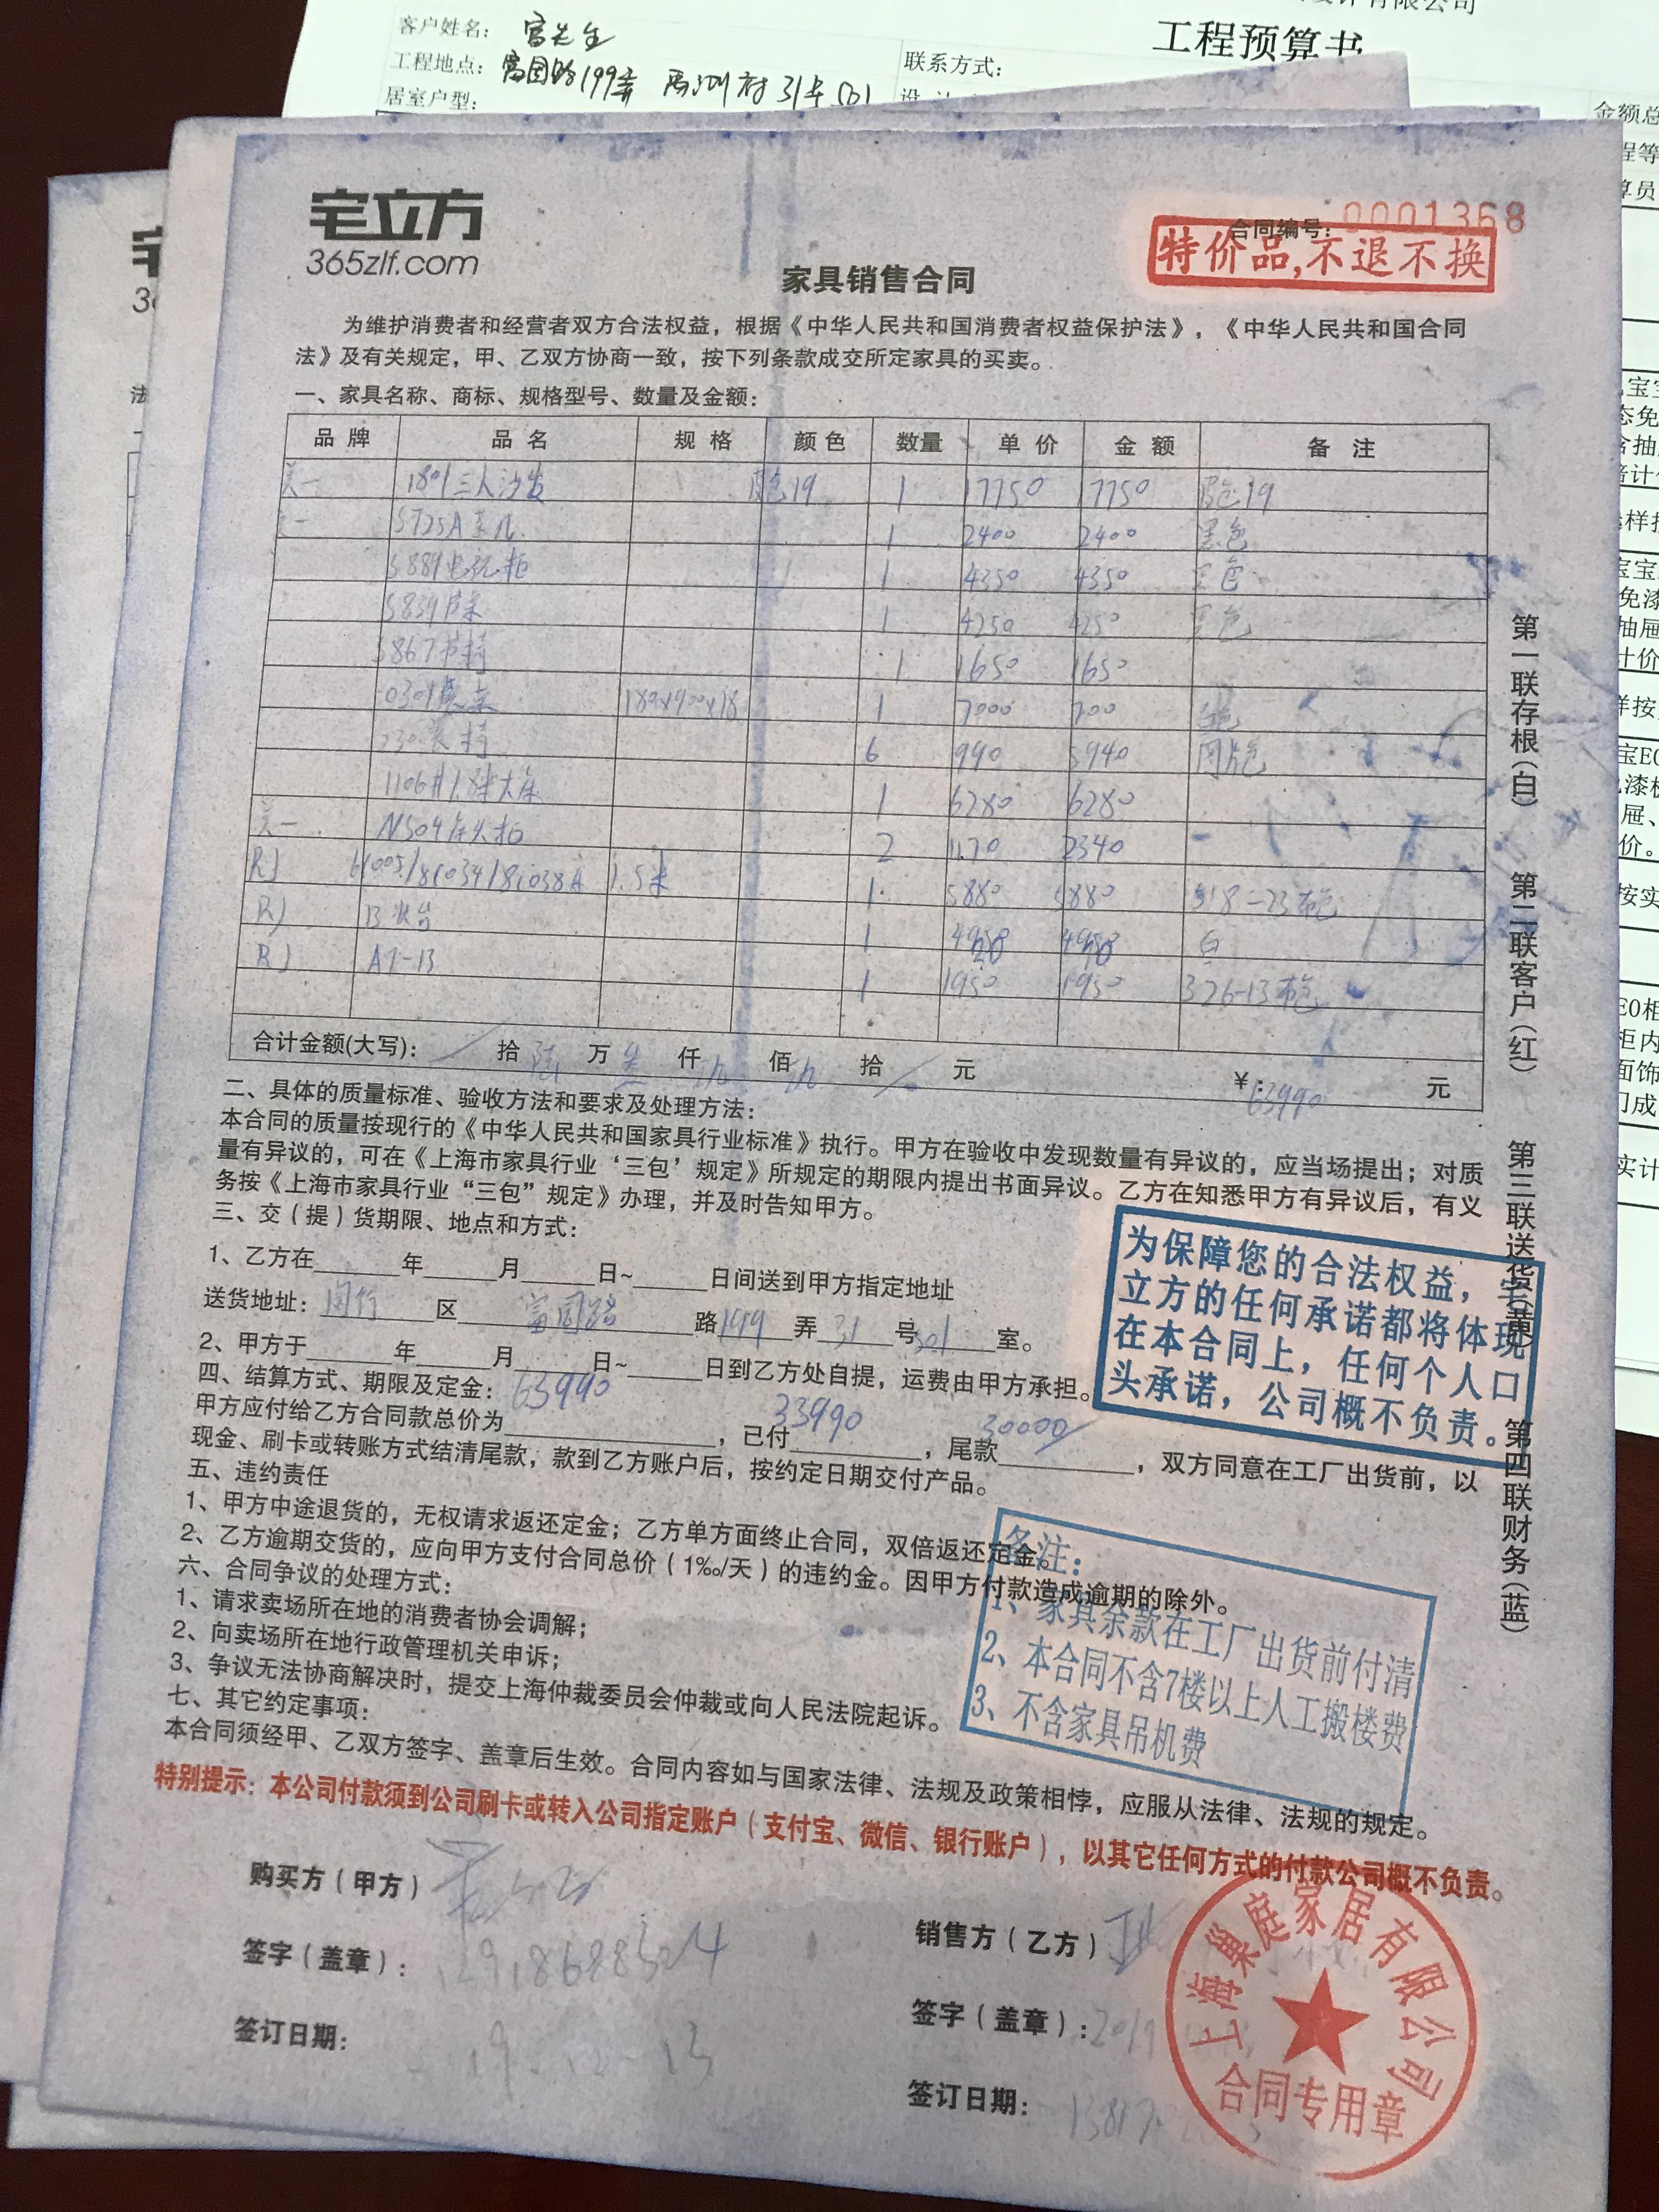 计有限公司
工程预算书
客户姓名：
工程地点：富国路199弄 31号501
联系方式：
居室户型：
宅立方
365zlf.com
合同编号：0001368
特价品,不退不换
家具销售合同
为维护消费者和经营者双方合法权益，根据《中华人民共和国消费者权益保护法》，《中华人民共和国合同
法》及有关规定，甲、乙双方协商一致，按下列条款成交所定家具的买卖。
一、家具名称、商标、规格型号、数量及金额：
品牌 品名 规格 颜色 数量 单价 金额 备注
美一 1801三人沙发 皮色19 1 17750 17750 皮色19
S725A茶几 1 2400 2400 黑色
S889电视柜 1 4350 4350 黑色
S839书桌 1 4250 4250 黑色
S867书椅 1 1650 1650
1 7000
6 990 5940
1106#1.8米大床 1 6280 6280
美一 N504床头柜 2 1170 2340
1.5米 1 5880 5880 布色
1 白
A7-13 1 1950 1950 326-13布色
合计金额(大写)： 拾 陆 万 叁 仟 玖 佰 玖 拾 元 ￥：63990 元
二、具体的质量标准、验收方法和要求及处理方法：
本合同的质量按现行的《中华人民共和国家具行业标准》执行。甲方在验收中发现数量有异议的，应当场提出；对质
量有异议的，可在《上海市家具行业‘三包’规定》所规定的期限内提出书面异议。乙方在知悉甲方有异议后，有义
务按《上海市家具行业“三包”规定》办理，并及时告知甲方。
三、交（提）货期限、地点和方式：
1、乙方在______年_____月_____日~_____日间送到甲方指定地址
送货地址：闵行 区 富国路 路 199 弄 31 号 501 室。
2、甲方于______年_____月_____日~_____日到乙方处自提，运费由甲方承担。
四、结算方式、期限及定金：
甲方应付给乙方合同款总价为 63990 ，已付 33990 ，尾款 30000 ，双方同意在工厂出货前，以
现金、刷卡或转账方式结清尾款，款到乙方账户后，按约定日期交付产品。
五、违约责任
1、甲方中途退货的，无权请求返还定金；乙方单方面终止合同，双倍返还定金。
2、乙方逾期交货的，应向甲方支付合同总价（1‰/天）的违约金。因甲方付款造成逾期的除外。
六、合同争议的处理方式：
1、请求卖场所在地的消费者协会调解；
2、向卖场所在地行政管理机关申诉；
3、争议无法协商解决时，提交上海仲裁委员会仲裁或向人民法院起诉。
七、其它约定事项：
本合同须经甲、乙双方签字、盖章后生效。合同内容如与国家法律、法规及政策相悖，应服从法律、法规的规定。
特别提示：本公司付款须到公司刷卡或转入公司指定账户（支付宝、微信、银行账户），以其它任何方式的付款公司概不负责。
为保障您的合法权益，宅
立方的任何承诺都将体现
在本合同上，任何个人口
头承诺，公司概不负责。
备注：
1、家具余款在工厂出货前付清
2、本合同不含7楼以上人工搬楼费
3、不含家具吊机费
购买方（甲方）
签字（盖章）：
签订日期： 19-12-13
销售方（乙方）
签字（盖章）：
签订日期：
上海巢庭家居有限公司
合同专用章
第一联存根（白） 第二联客户（红） 第三联送货（黄） 第四联财务（蓝）